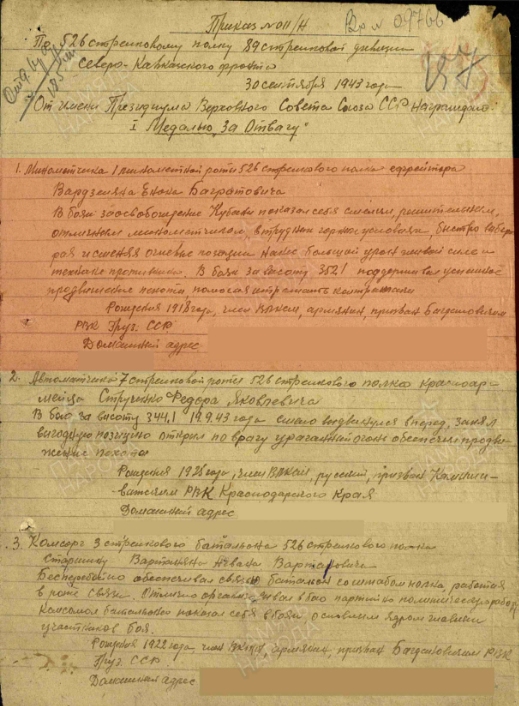 Приказ № 011/Н
По 526 стрелковому полку 89 стрелковой дивизии
Северо-Кавказского фронта
30 сентября 1943 года
От имени Президиума Верховного Совета Союза ССР Награждаю:
I Медалью "За Отвагу"
1. Минометчика 1 минометной роты 526 стрелкового полка ефрейтора
Вардзеляна Багратовича
В боях за освобождение Кубани показал себя смелым, решительным,
отличным минометчиком, в трудных горных условиях, быстро
огневые позиции большой урон живой силе и
технике противника. В боях за высоту 352.1 поддерживая успешное
продвижение пехоты контратаки
Рождения 1918 года, член ВЛКСМ, армянин, призван Богдановским
РВК Груз. ССР
Домашний адрес
2. Автоматчика 7 стрелковой роты 526 стрелкового полка красноар-
мейца Федора Яковлевича
В бою за высоту 344,1 19.9.43 года смело выдвинулся вперед, занял
выгодную позицию открыл по врагу ураганный огонь обеспечив продви-
жение пехоты
Рождения 1925 года, член ВЛКСМ, русский, призван
РВК Краснодарского Края
Домашний адрес
3. Комсорг 3 стрелкового батальона 526 стрелкового полка
Старшину Вартаняна
Бесперебойно обеспечивал связь батальона со штабом полка, работая
в роте связи. Отлично в бою
батальона показал себя в боях
участников боя.
Рождения 1922 года, член армянин, призван Богдановским РВК
Груз. ССР.
Домашний адрес